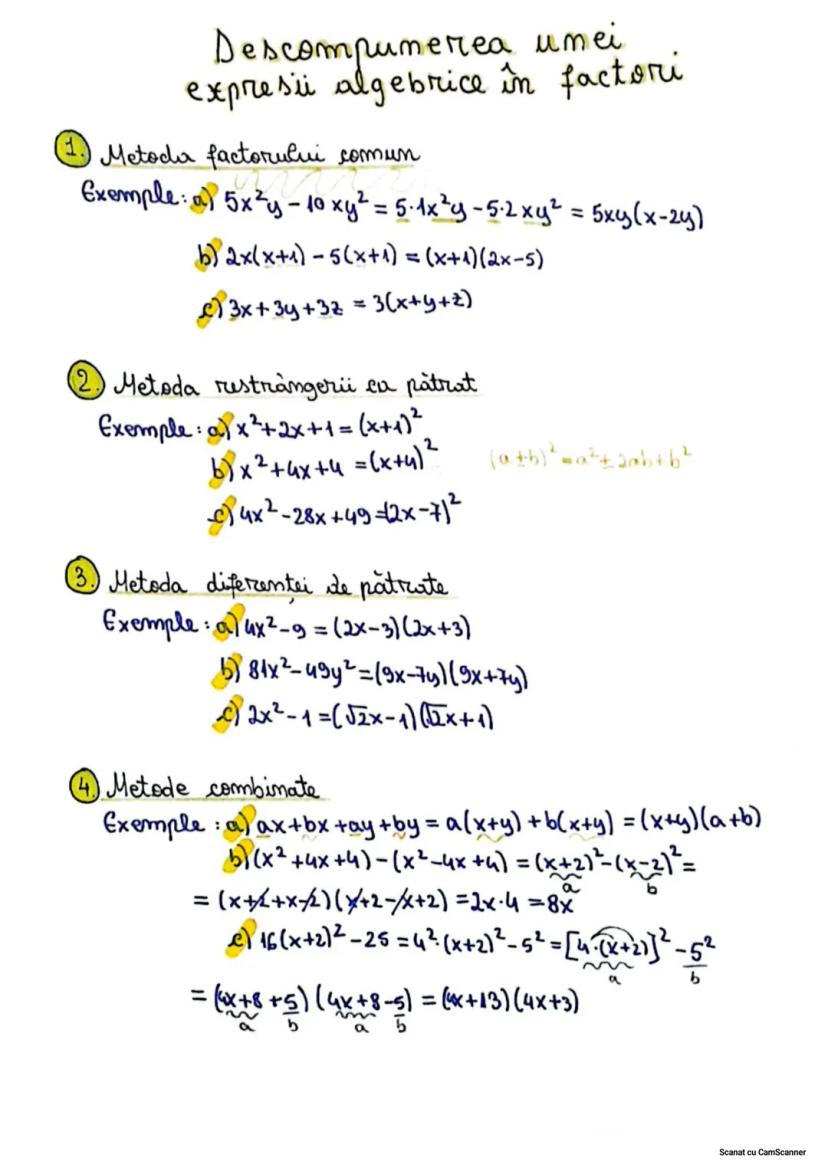 Descompunerea unei
expresii algebrice în factori
1. Metoda factorului comun
Exemple: a) 5x²y - 10xy² = 5·1x²y - 5·2xy² = 5xy(x-2y)
b) 2x(x+1) - 5(x+1) = (x+1)(2x-5)
c) 3x+3y+3z = 3(x+y+z)
2. Metoda restrângerii ca pătrat
Exemple: a) x²+2x+1 = (x+1)²
b) x²+4x+4 = (x+4)²
(a±b)² = a² ± 2ab + b²
c) 4x² - 28x + 49 = (2x-7)²
3. Metoda diferenței de pătrate
Exemple: a) 4x² - 9 = (2x-3)(2x+3)
b) 81x² - 49y² = (9x-7y)(9x+7y)
c) 2x² - 1 = (√2x-1)(√2x+1)
4. Metode combinate
Exemple: a) ax+bx+ay+by = a(x+y)+b(x+y) = (x+y)(a+b)
b) (x²+4x+4) - (x²-4x+4) = (x+2)² - (x-2)² =
a b
= (x+2+x-2)(x+2-x+2) = 2x·4 = 8x
c) 16(x+2)² - 25 = 4²·(x+2)² - 5² = [4·(x+2)]² - 5²
a b
= (4x+8+5)(4x+8-5) = (4x+13)(4x+3)
a b a b
Scanat cu CamScanner